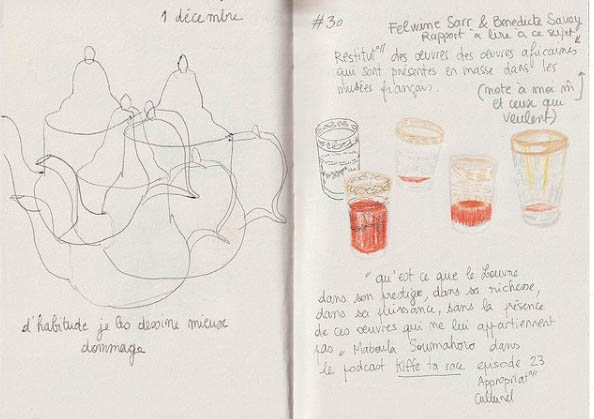 1 décembre
d'habitude je les dessine mieux
dommage
#30
Felwine Sarr & Benedicte Savoy
Rapport à lire à ce sujet
Restitut° des œuvres des œuvres africaines
qui sont présentes en masse dans les
musées français.
(note à moi m̂
et ceux qui
veulent)
"qu'est ce que le Louvre
dans son prestige, dans sa richesse,
dans sa puissance, sans la présence
de ces œuvres qui ne lui appartiennent
pas" Maboula Soumahoro dans
le podcast Kiffe ta race episode 23
Appropriat°
Culturel